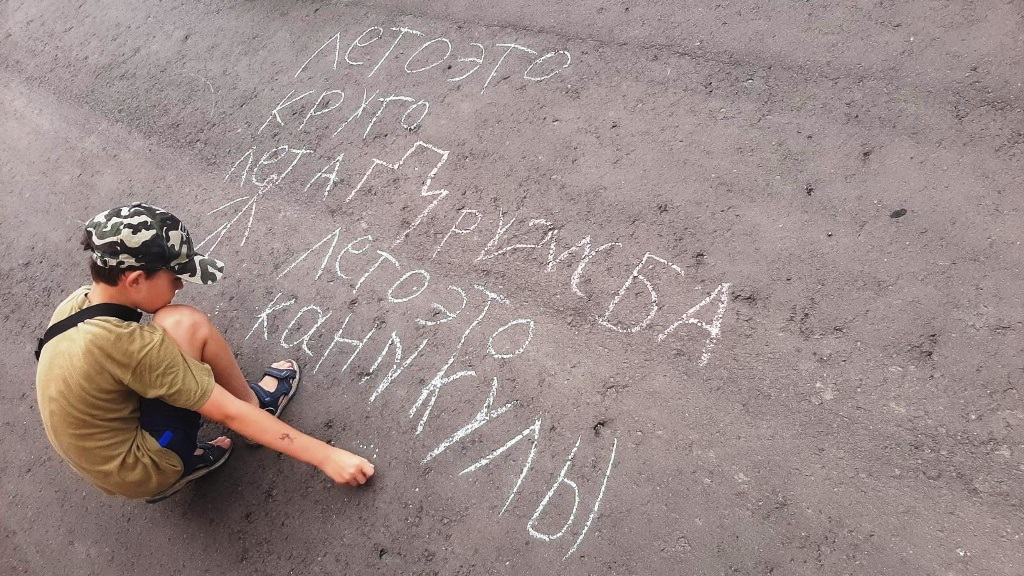 ЛеТОЭТО
КРУТО
ЛеТА ДРУЖБА
ЛеТОЭТО
КаНИКУЛЫ